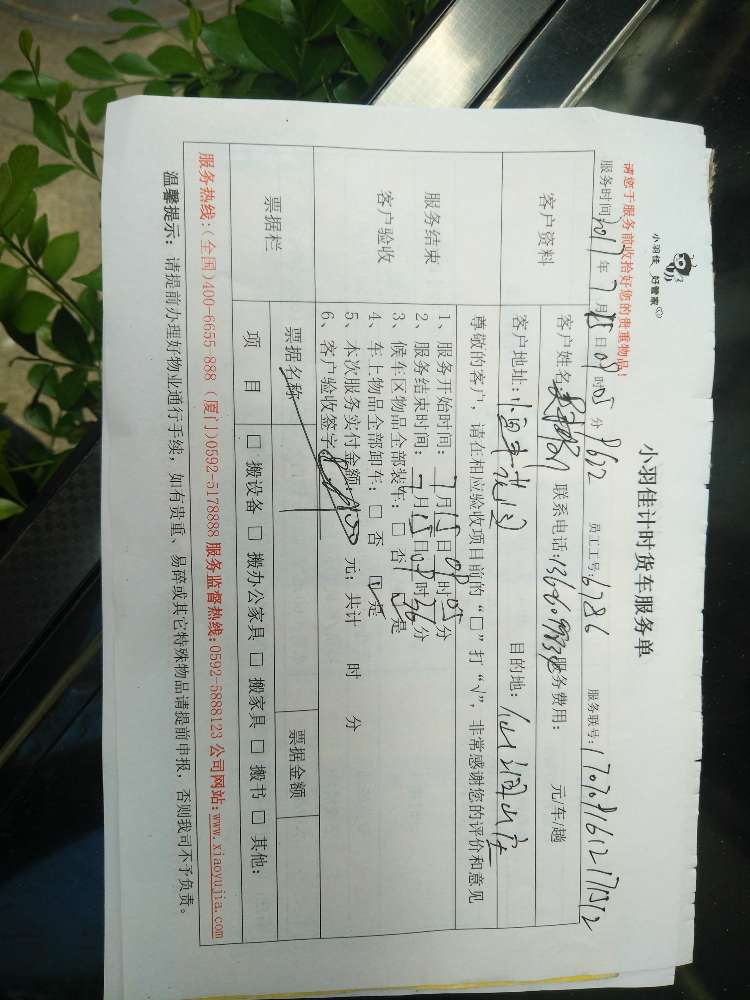 小羽佳 好管家
小羽佳计时货车服务单
请您于服务前收拾好您的贵重物品!
服务时间:2017年7月15日09时05分 员工工号:6786 服务联号:
客户资料
客户姓名: 联系电话: 服务费用: 元/车/趟
客户地址: 目的地:
尊敬的客户,请在相应验收项目前的“□”打“√”,非常感谢您的评价和意见
服务结束
客户验收
1、服务开始时间:7月15日09时05分
2、服务结束时间:7月15日09时36分
3、候车区物品全部装车:□ 否 ☑是
4、车上物品全部卸车:□ 否 ☑是
5、本次服务实付金额: 元;共计 时 分
6、客户验收签字:
票据栏
票据名称 票据金额
项 目 □ 搬设备 □ 搬办公家具 □ 搬家具 □ 搬书 □ 其他:
服务热线:(全国)400-6655 888 (厦门)0592-5178888 服务监督热线:0592-5888123 公司网站:www.xiaoyujia.com
温馨提示:请提前办理好物业通行手续,如有贵重、易碎或其它特殊物品请提前申报,否则我司不予负责。